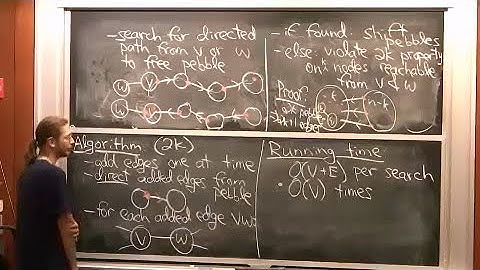 -search for directed
path from v or w
to free pebble
w v
w v
-if found: shift
pebbles
-else: violate 2k property
on k nodes reachable
from v & w
Proof:
k
n-k
Algorithm (2k)
-add edges one at time
-direct added edges from
pebble
-for each added edge vw:
v w
Running time
O(V+E) per search
· O(V) times